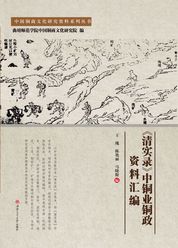 中国铜商文化研究资料系列丛书
曲靖师范学院中国铜商文化研究院 编
《清实录》中铜业铜政
资料汇编